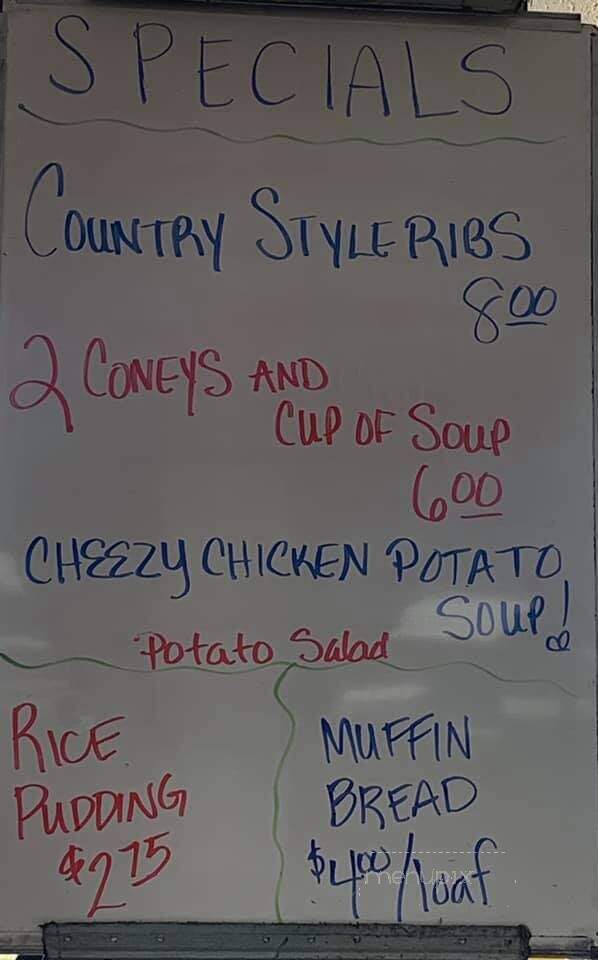 SPECIALS
COUNTRY STYLE RIBS
8.00
2 CONEYS AND
CUP OF SOUP
600
CHEEZY CHICKEN POTATO
SOUP!
Potato Salad
RICE
PUDDING
$275
MUFFIN
BREAD
$400/loaf
menupix